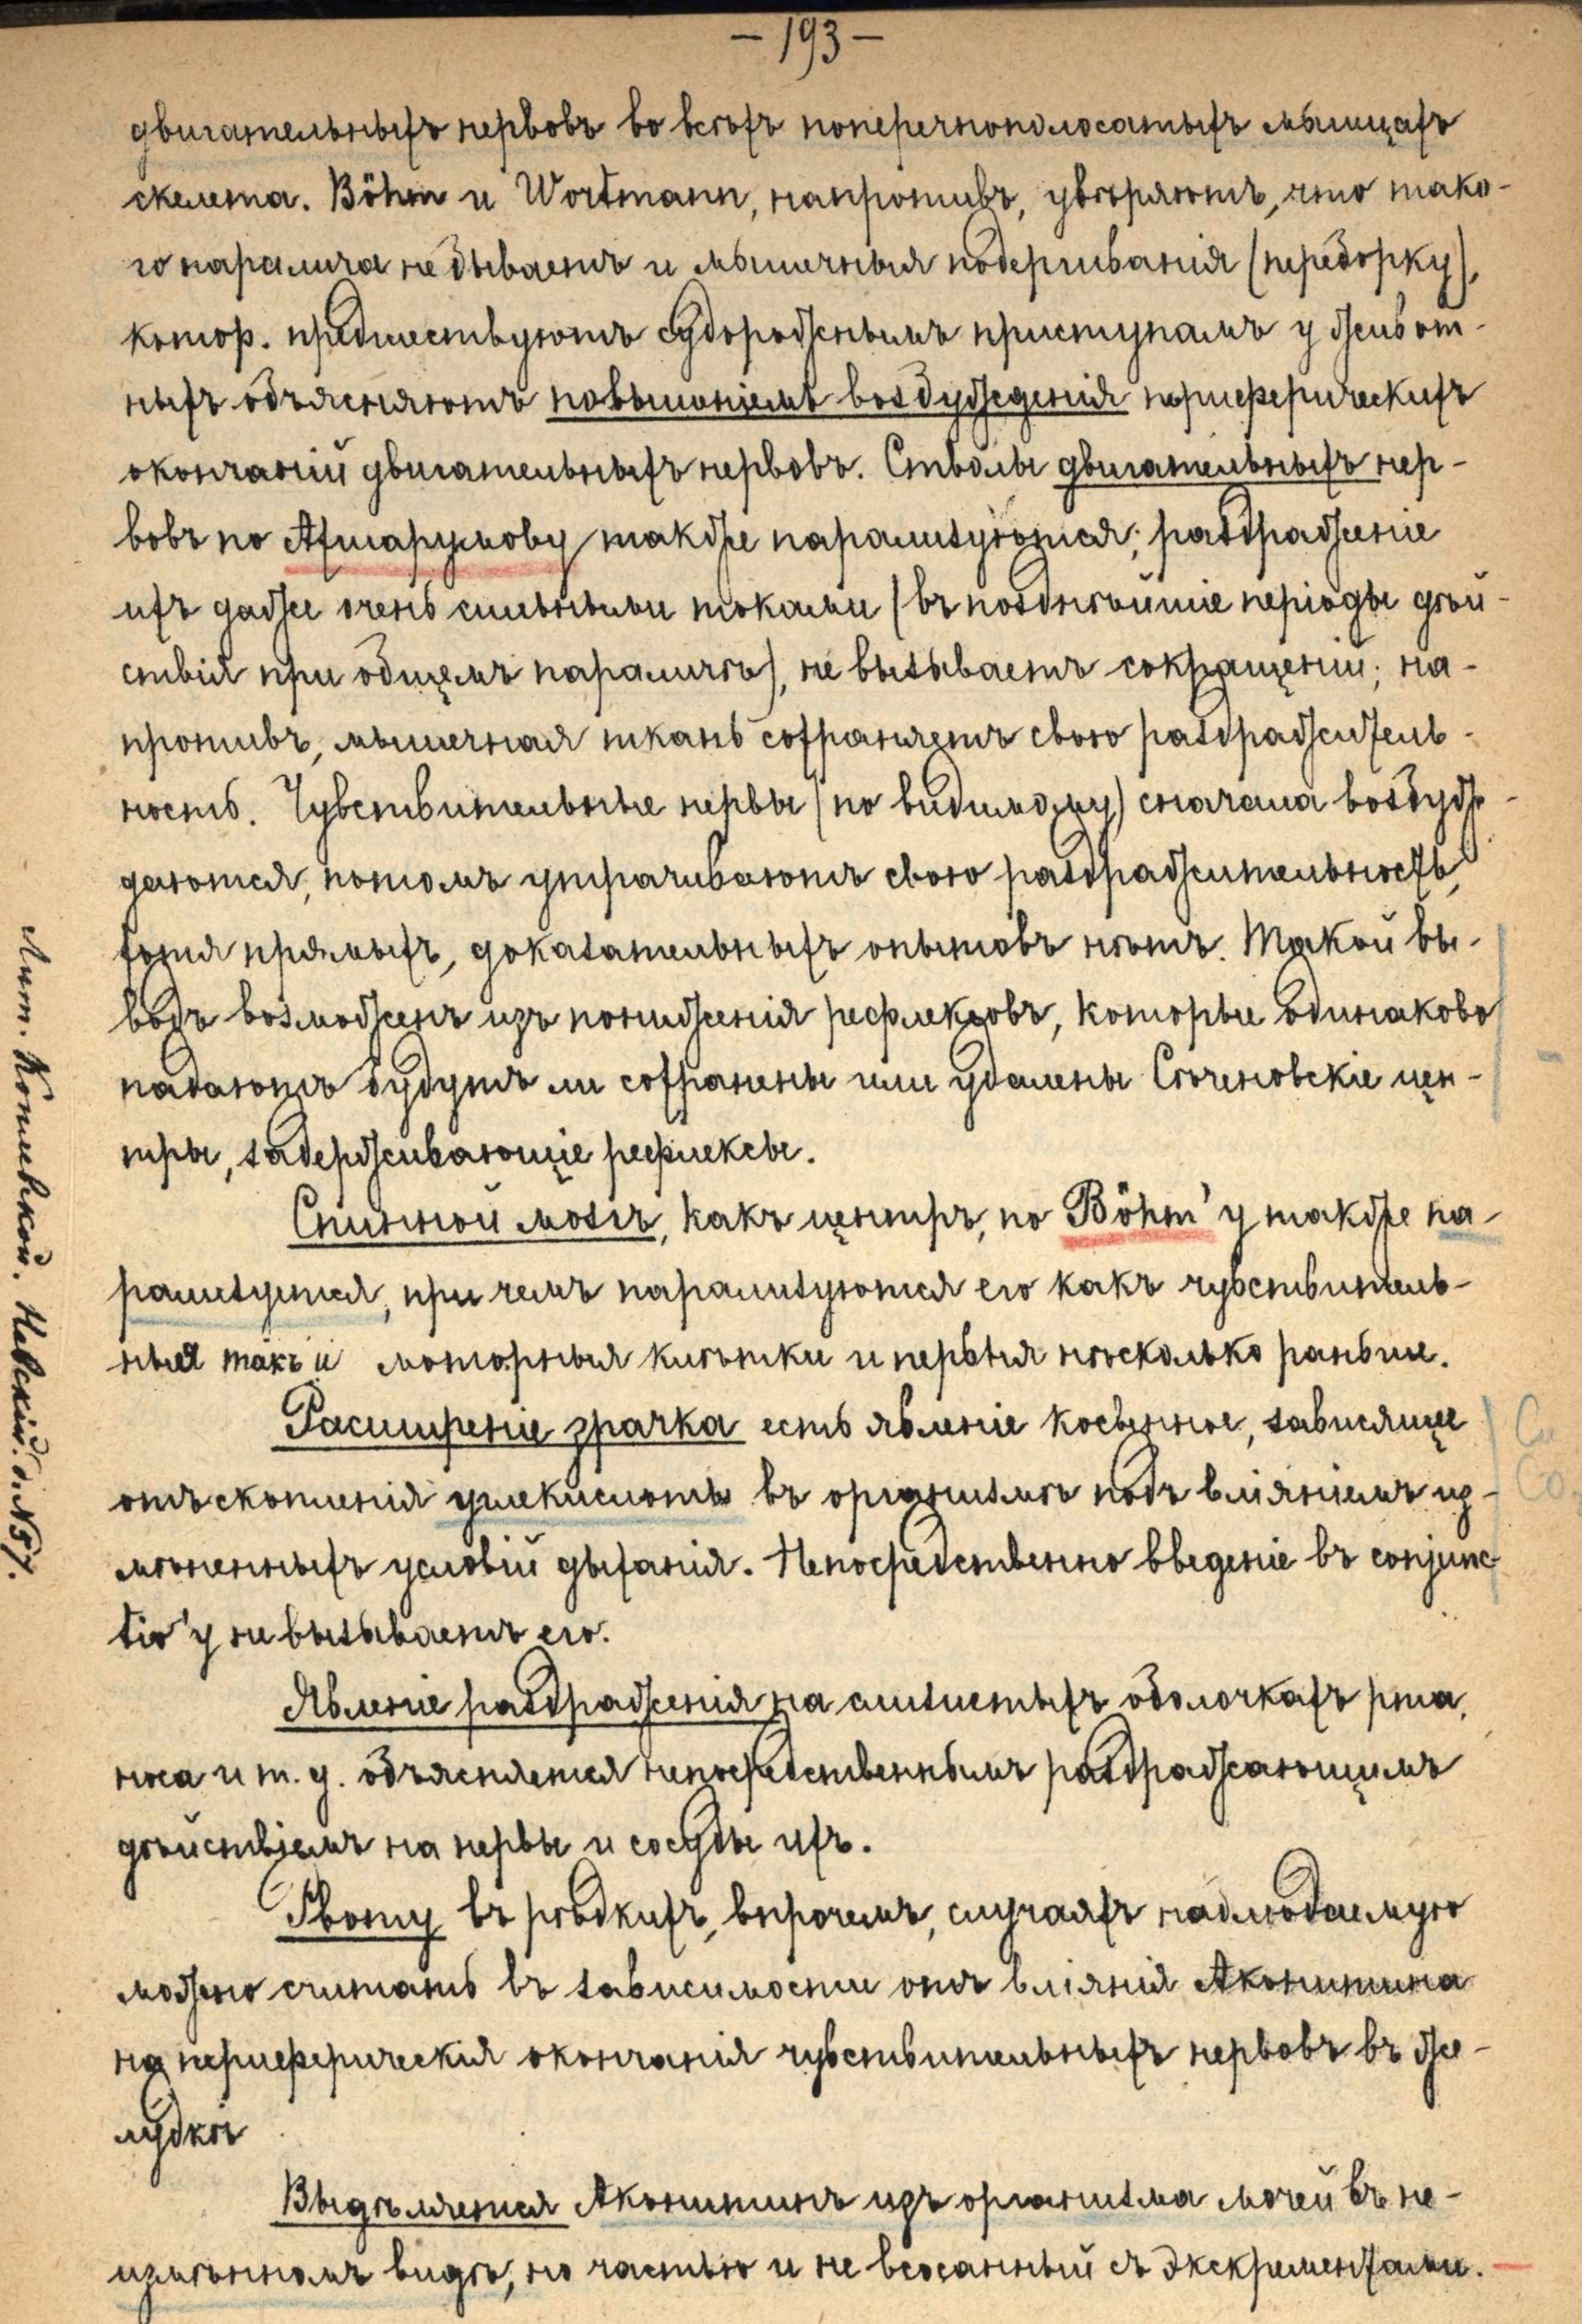 — 193 —
двигательныхъ нервовъ во всѣхъ поперечнополосатыхъ мышцахъ
скелета. Böhm и Wortmann, напротивъ, увѣряютъ, что тако-
го паралича не бываетъ и мышечныя подергиванія (передорку),
котор. предшествуютъ судорожнымъ приступамъ у живот-
ныхъ объясняютъ повышеніемъ возбужденія периферическихъ
окончаній двигательныхъ нервовъ. Стволы двигательныхъ нер-
вовъ по Ахшарумову также парализуются; раздраженіе
ихъ даже очень сильными токами (въ позднѣйшіе періоды дѣй-
ствія при общемъ параличѣ), не вызываетъ сокращеній; на-
противъ, мышечная ткань сохраняетъ свою раздражитель-
ность. Чувствительные нервы (по видимому) сначала возбуж-
даются, потомъ утрачиваютъ свою раздражительность,
хотя прямыхъ, доказательныхъ опытовъ нѣтъ. Такой вы-
водъ возможенъ изъ пониженія рефлексовъ, которые одинаково
падаютъ будутъ ли сохранены или удалены Сѣченовскіе цен-
тры, задерживающіе рефлексы.
Спинной мозгъ, какъ центръ, по Böhm'у также па-
рализуется, при чемъ парализуются его какъ чувствитель-
ныя такъ и моторныя клѣтки и первыя нѣсколько раньше.
Расширеніе зрачка есть явленіе косвенное, зависящее
отъ скопленія углекислоты въ организмѣ подъ вліяніемъ из-
мѣненныхъ условій дыханія. Непосредственно введеніе въ conjunc-
tio'у не вызываетъ его.
Явленіе раздраженія на слизистыхъ оболочкахъ рта,
носа и т. д. объясняется непосредственнымъ раздражающимъ
дѣйствіемъ на нервы и сосуды ихъ.
Рвоту въ рѣдкихъ, впрочемъ, случаяхъ наблюдаемую
можно считать въ зависимости отъ вліянія Аконитина
на периферическія окончанія чувствительныхъ нервовъ въ же-
лудкѣ
Выдѣляется Аконитинъ изъ организма мочей въ не-
измѣнномъ видѣ, но частью и не всосанный съ экскрементами.
Лит. Котельной. Невскій. д. № 57.
Co